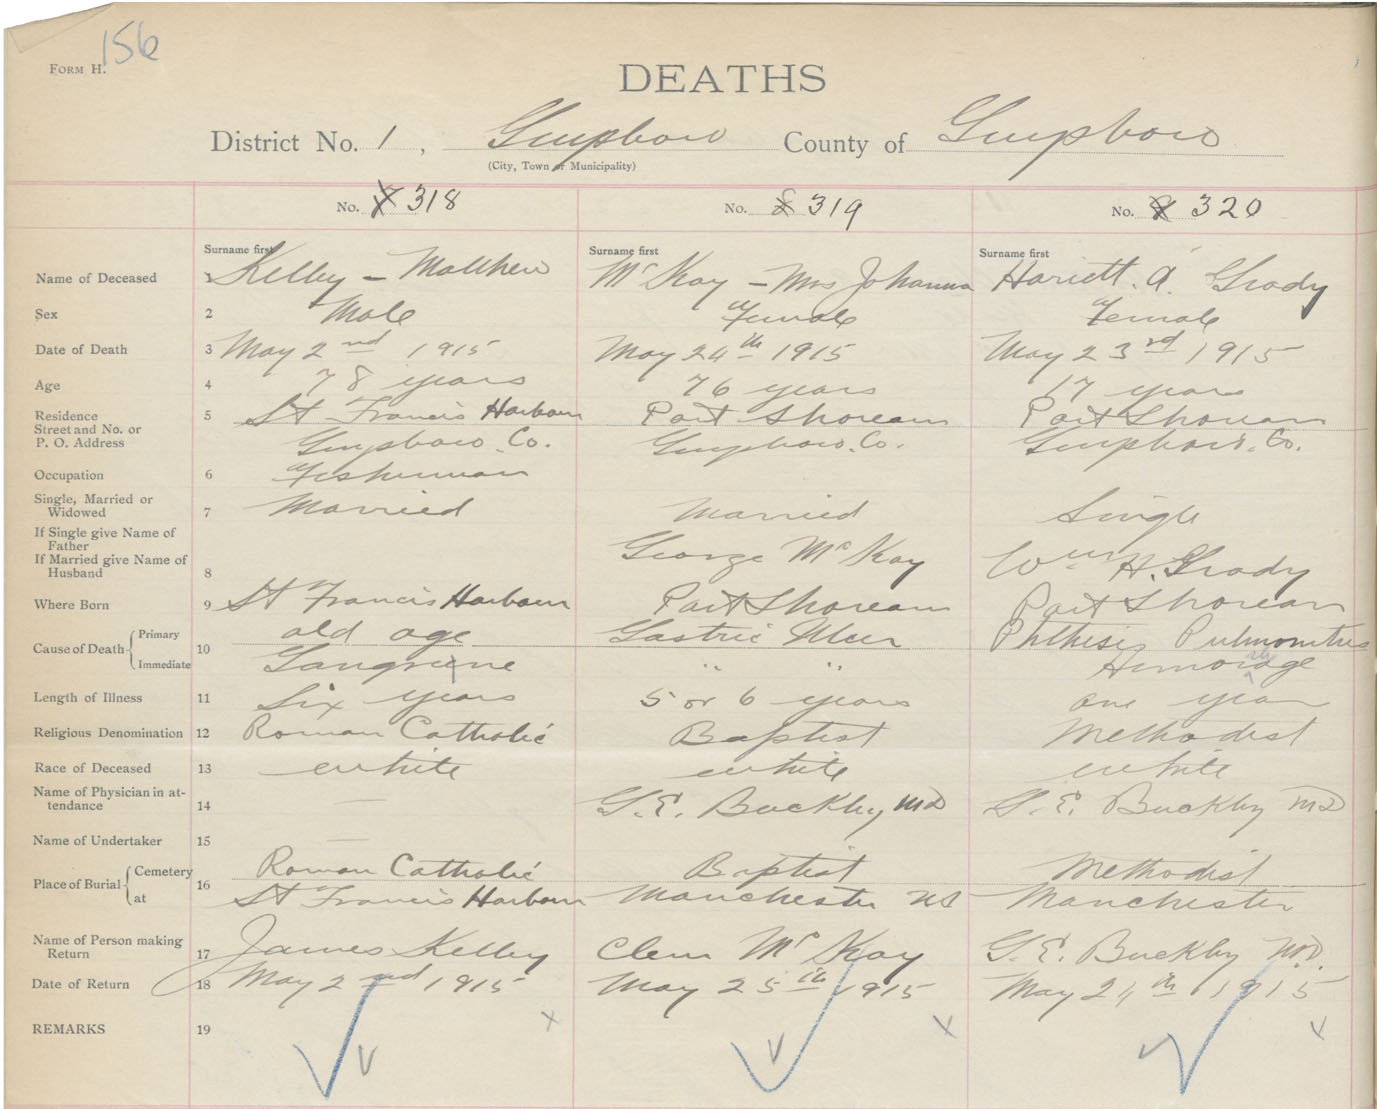 156
FORM H.
DEATHS
District No. 1, Guysboro County of Guysboro
(City, Town or Municipality)
No. 7 318 No. 8 319 No. 9 320
Surname first Surname first Surname first
Name of Deceased 1 Kelley - Matthew McKay - Mrs Johanna Hariett. A. Grady
Sex 2 Male Female Female
Date of Death 3 May 2nd 1915 May 24th 1915 May 23rd 1915
Age 4 78 years 76 years 17 years
Residence 5 St Francis Harbour Port Shoream Port Shoream
Street and No. or
P. O. Address Guysboro Co. Guysboro. Co. Guysboro. Co.
Occupation 6 Fisherman
Single, Married or
Widowed 7 Married Married Single
If Single give Name of
Father
If Married give Name of
Husband 8 George McKay Wm H. Grady
Where Born 9 St Francis Harbour Port Shoream Port Shoream
Cause of Death Primary 10 old age Gastric Ulcer Phthisis Pulmonitus
Immediate Gangrene " " Hemorage
Length of Illness 11 Six years 5 or 6 years one year
Religious Denomination 12 Roman Catholic Baptist Methodist
Race of Deceased 13 white white white
Name of Physician in at-
tendance 14 — G. E. Buckley MD G. E. Buckley MD
Name of Undertaker 15 —
Place of Burial Cemetery 16 Roman Catholic Baptist Methodist
at St Francis Harbour Manchester NS Manchester
Name of Person making
Return 17 James Kelley Clem McKay G. E. Buckley M.D.
Date of Return 18 May 2nd 1915 May 25th 1915 May 24th 1915
REMARKS 19